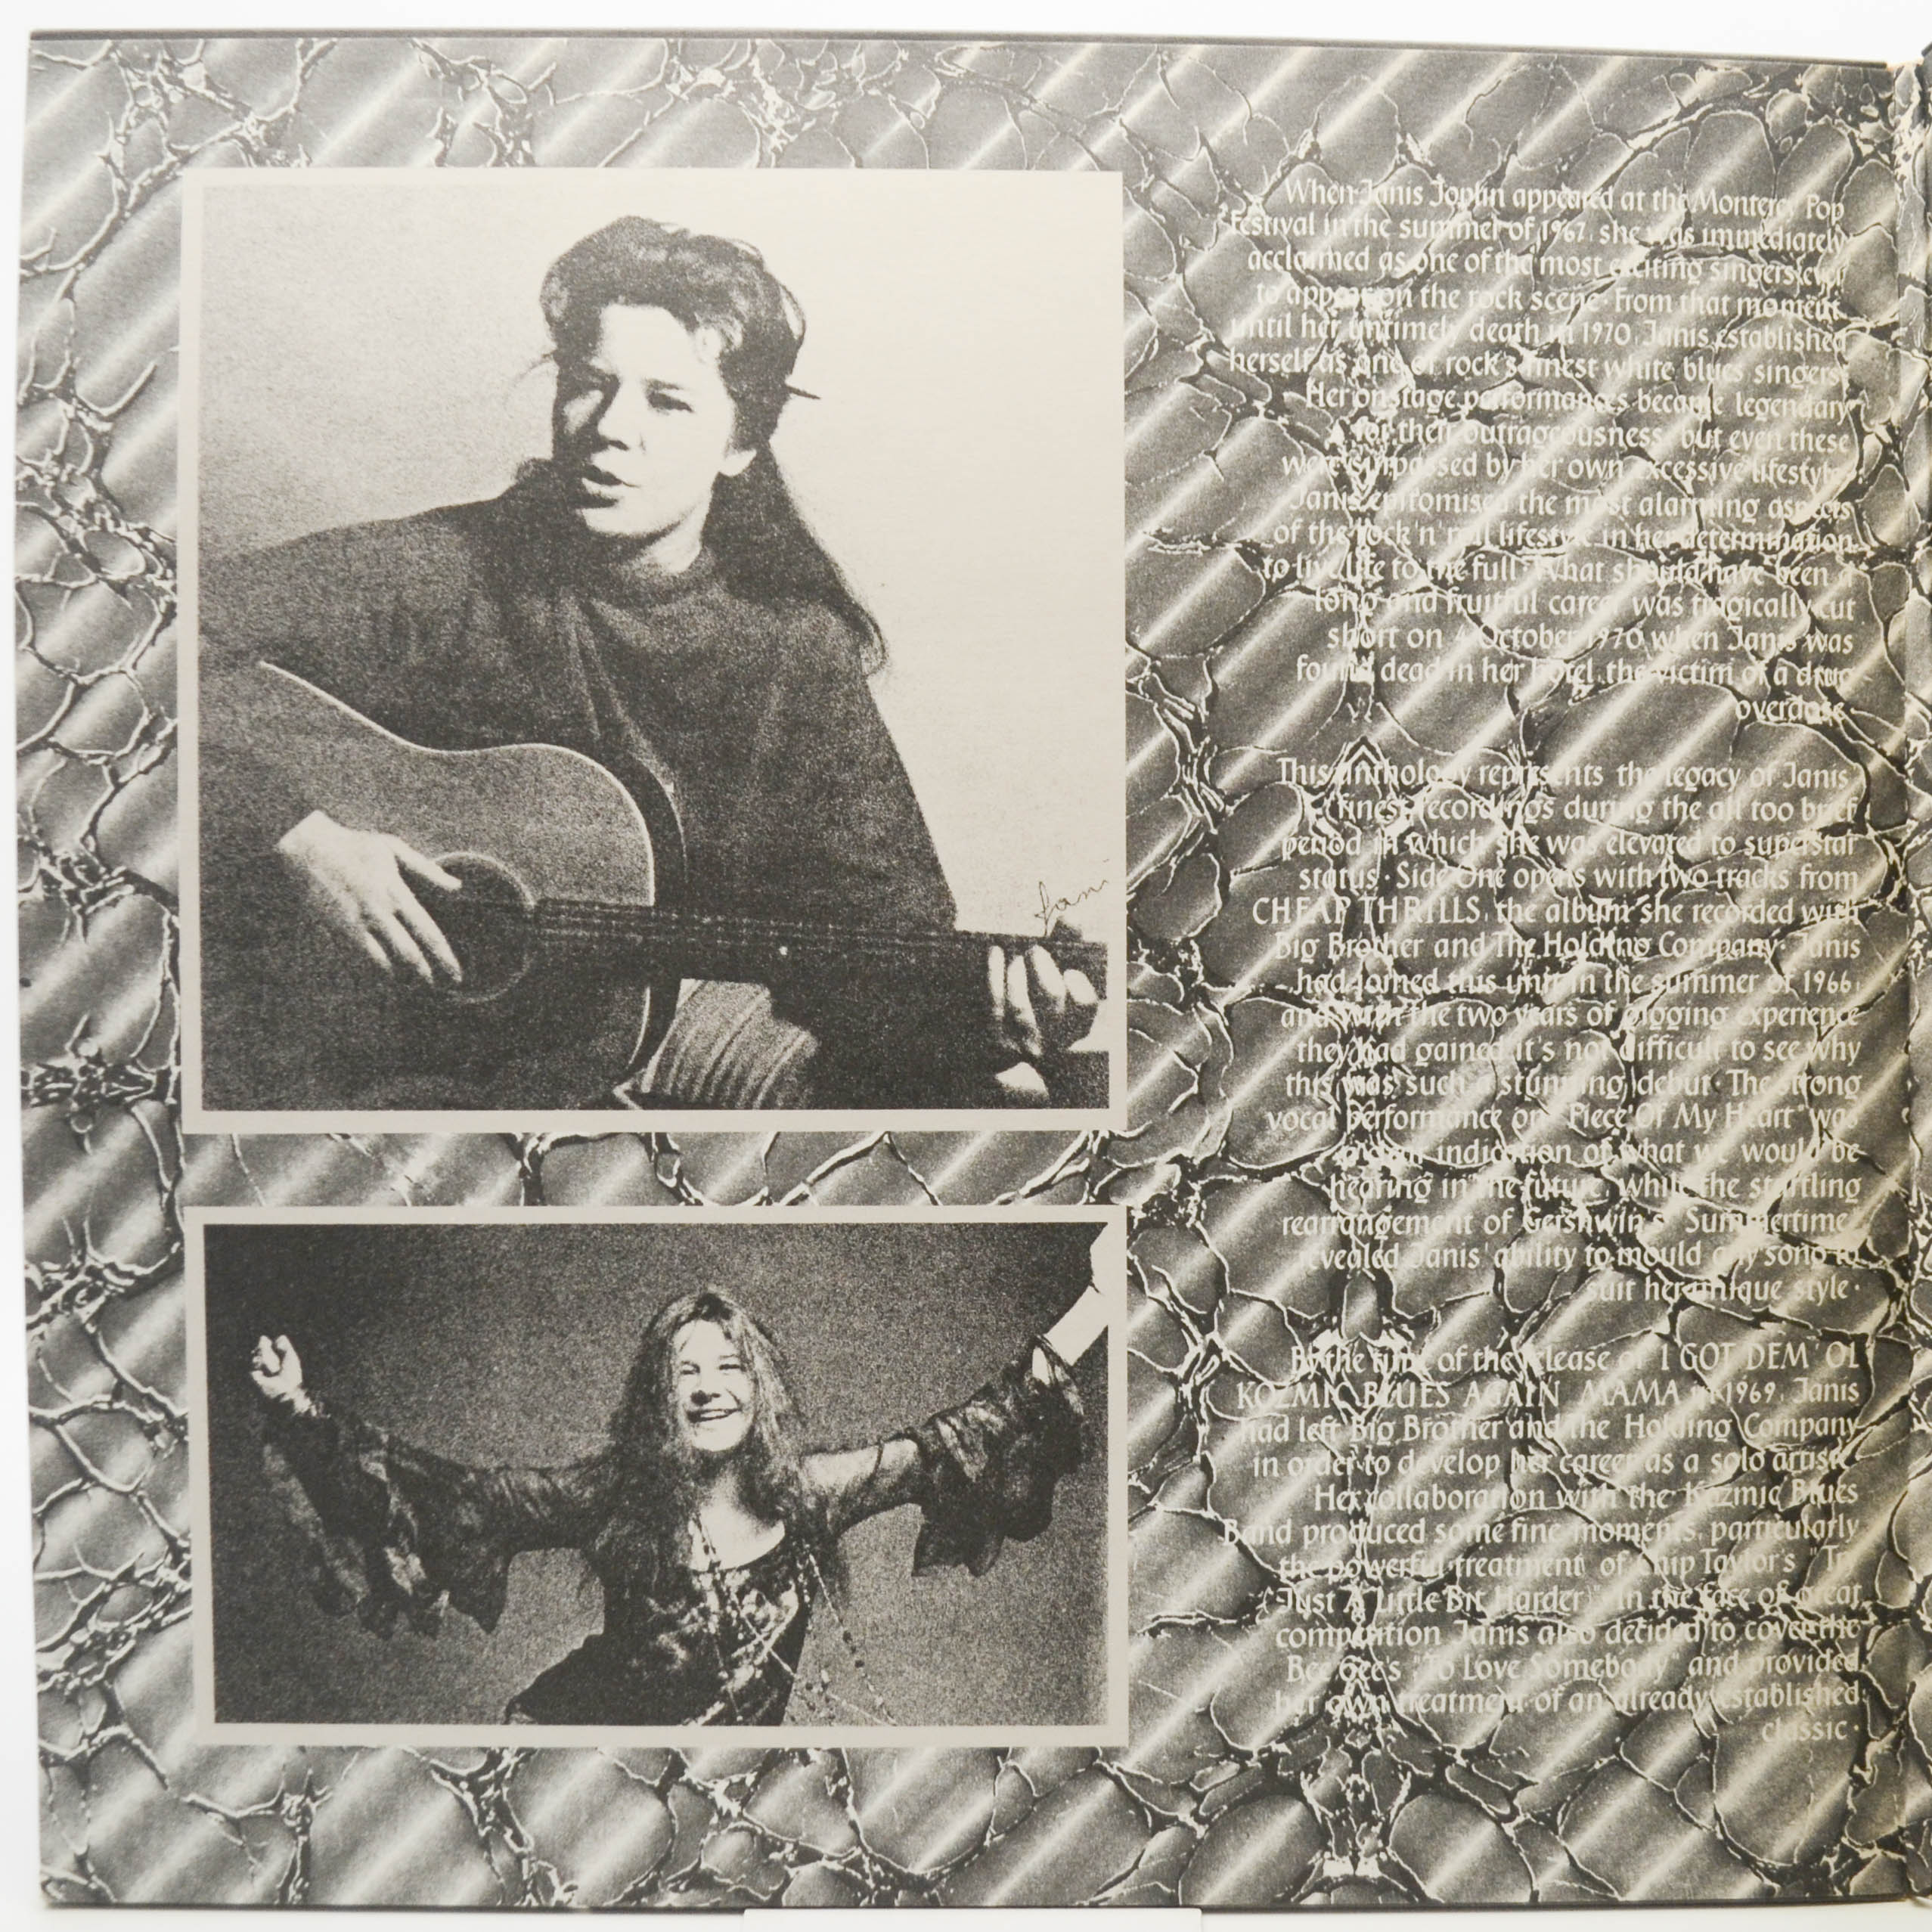 When Janis Joplin appeared at the Monterey Pop
Festival in the summer of 1967, she was immediately
acclaimed as one of the most exciting singers ever
to appear on the rock scene· From that moment
until her untimely death in 1970, Janis established
herself as one of rock's finest white blues singers·
Her onstage performances became legendary
for their outrageousness, but even these
were surpassed by her own excessive lifestyle·
Janis epitomised the most alarming aspects
of the rock 'n' roll lifestyle in her determination
to live life to the full· What should have been a
long and fruitful career was tragically cut
short on 4 October 1970 when Janis was
found dead in her hotel, the victim of a drug
overdose·
This anthology represents the legacy of Janis'
finest recordings during the all too brief
period in which she was elevated to superstar
status· Side One opens with two tracks from
CHEAP THRILLS, the album she recorded with
Big Brother and The Holding Company· Janis
had joined this unit in the summer of 1966,
and with the two years of gigging experience
they had gained it's not difficult to see why
this was such a stunning debut· The strong
vocal performance on "Piece Of My Heart" was
indication of what we would be
hearing in the future, while the startling
rearrangement of Gershwin's "Summertime"
revealed Janis' ability to mould any song to
suit her unique style·
By the time of the release of I GOT DEM OL'
KOZMIC BLUES AGAIN MAMA in 1969, Janis
had left Big Brother and the Holding Company
in order to develop her career as a solo artist·
Her collaboration with the Kozmic Blues
Band produced some fine moments, particularly
the powerful treatment of Chip Taylor's "Try
(Just A Little Bit Harder)"· In the face of great
competition Janis also decided to cover the
Bee Gee's "To Love Somebody" and provided
her own treatment of an already established
classic·
Janis